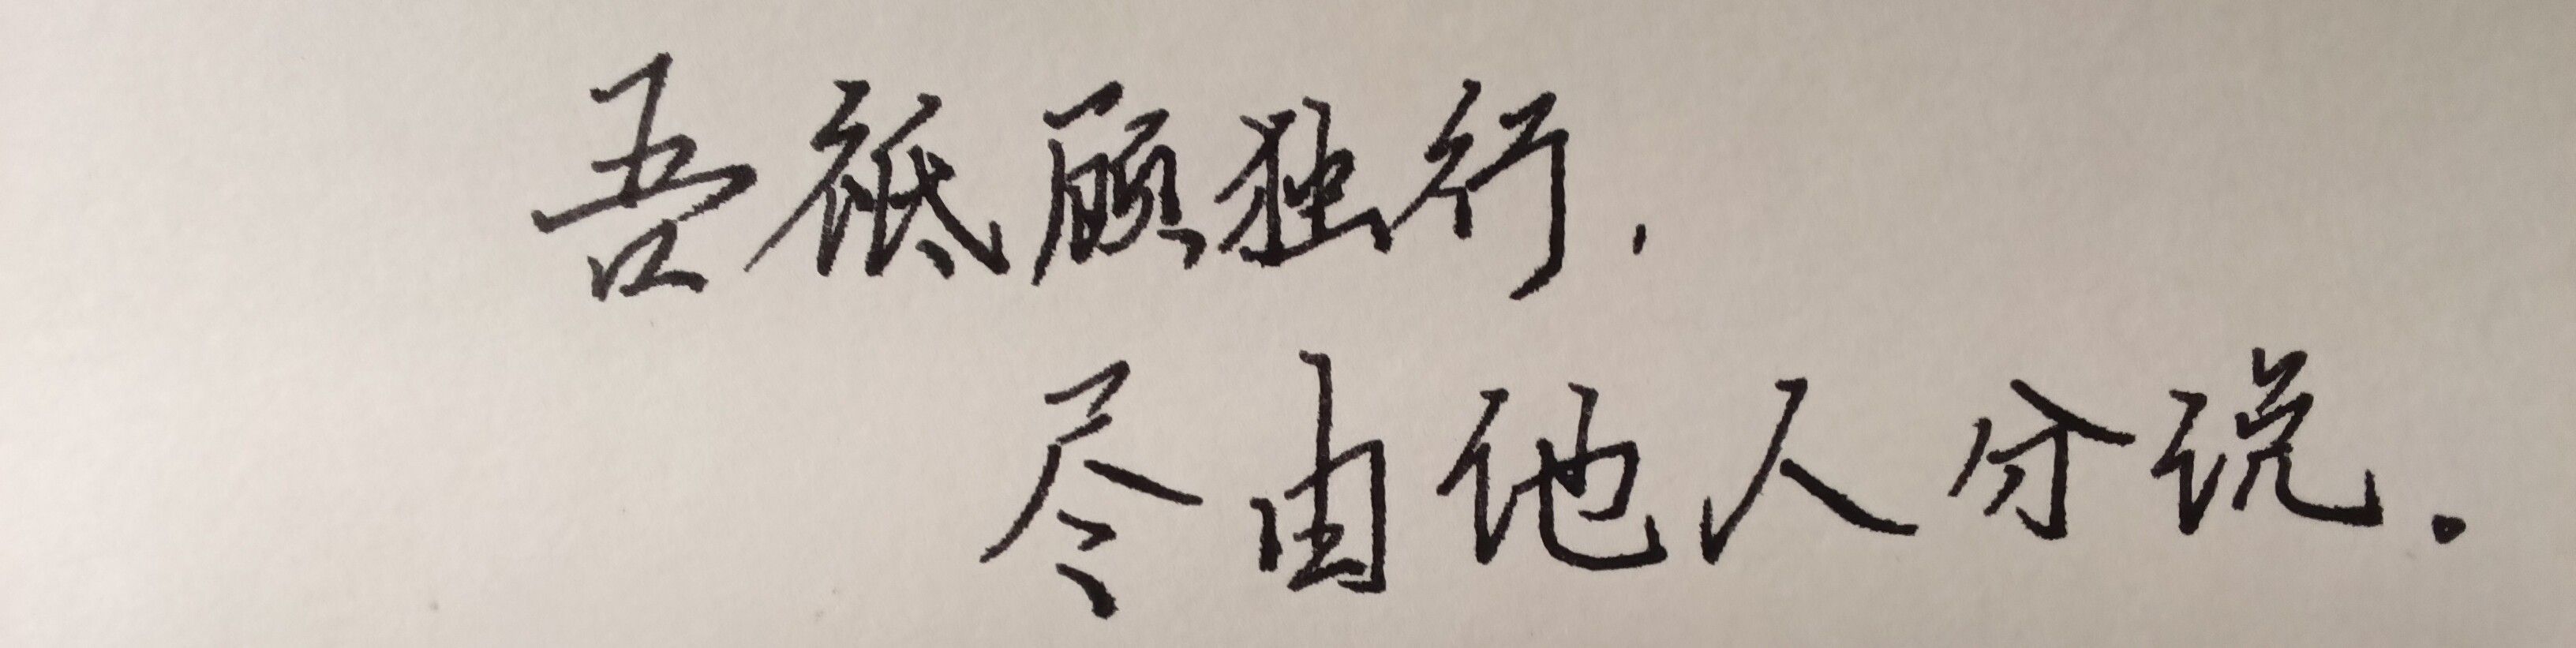 吾祗顾独行,
尽由他人分说.